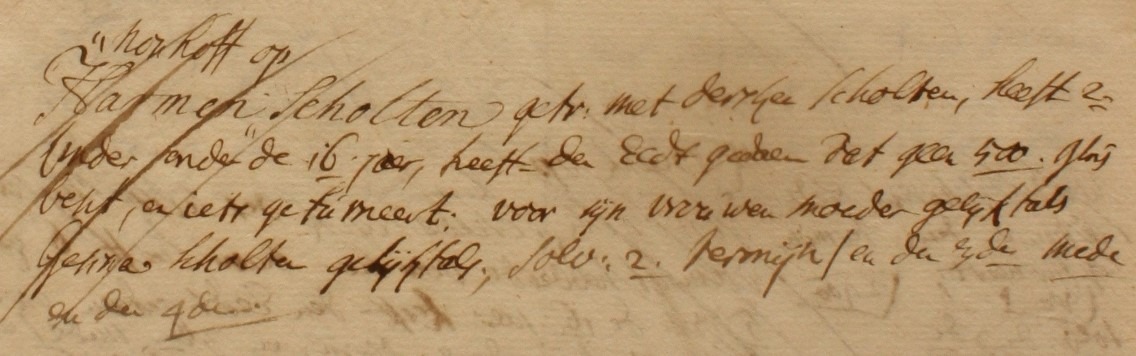 op
Harmen Scholten getr: met Derchien Scholten, heeft 2=
kinder onder de 16 jaer, heeft den Eedt gedaen dat geen 500. glns
besit, en ietz gefurneert. voor sijn vrouwen moeder gelijkfals
Gesina Scholten gelijkfals, solv: 2. termijn / en den 3den mede
en den 4den.